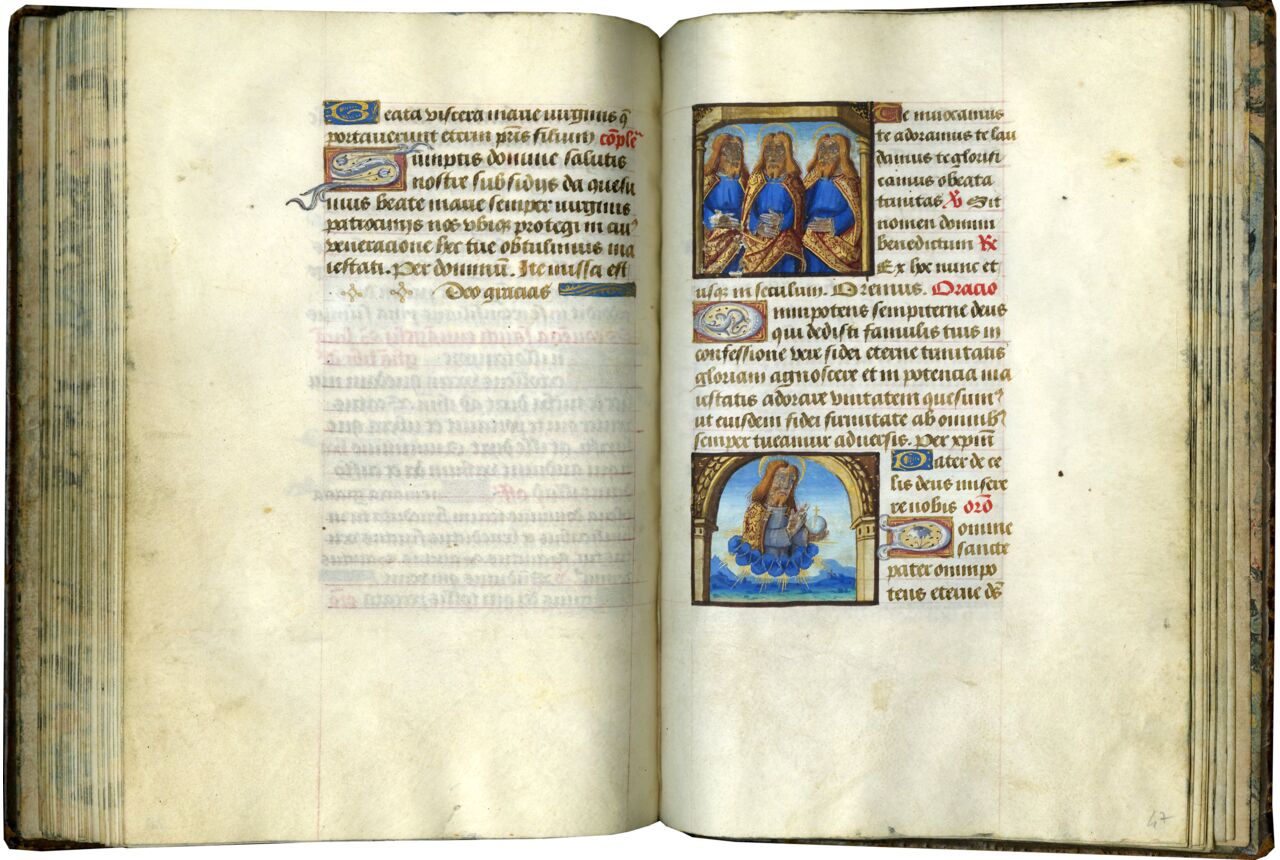 Beata viscera marie uirginis q̄
portauerunt eterni pr̄is filium cōple
Sumptis domine salutis
nostre subsidijs da quesu
mus beate marie semper uirginis
patrocinijs nos ubiqȝ protegi in cuiꝰ
veneracione hec tue obtulimus ma
iestati. Per dominū. Ite missa est
Deo gracias
Te inuocamus
te adoramus te lau
damus te glorifi
camus o beata
trinitas Sit
nomen domini
benedictum
Ex hoc nunc et
usqȝ in seculum. Oremus. Oracio
Omnipotens sempiterne deus
qui dedisti famulis tuis in
confessione vere fidei eterne trinitatis
gloriam agnoscere et in potencia ma
iestatis adorare vnitatem quesumꝰ
ut eiusdem fidei firmitate ab omnibꝰ
semper tueamur aduersis. Per xp̄m̄
Pater de ce
lis deus misere
re nobis orō
Domine
sancte
pater omnipo
tens eterne ds̄
47